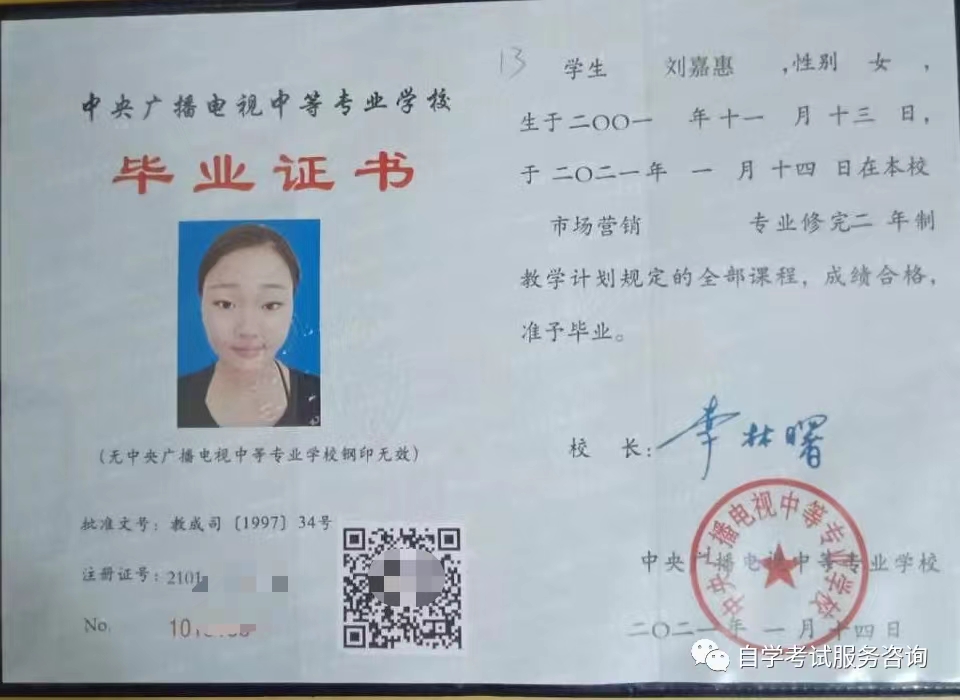 中央广播电视中等专业学校
毕业证书
(无中央广播电视中等专业学校钢印无效)
批准文号：教成司〔1997〕34号
注册证号：2101
No.
13
学生 刘嘉惠 ,性别 女 ,
生于二〇〇一 年十一 月 十三 日,
于 二〇二一年 一 月 十四 日在本校
市场营销 专业修完二 年制
教学计划规定的全部课程, 成绩合格,
准予毕业。
校 长: 李林曙
中央广播电视中等专业学校
中央广播电视中等专业学校
二〇二一年 一月十四日
自学考试服务咨询